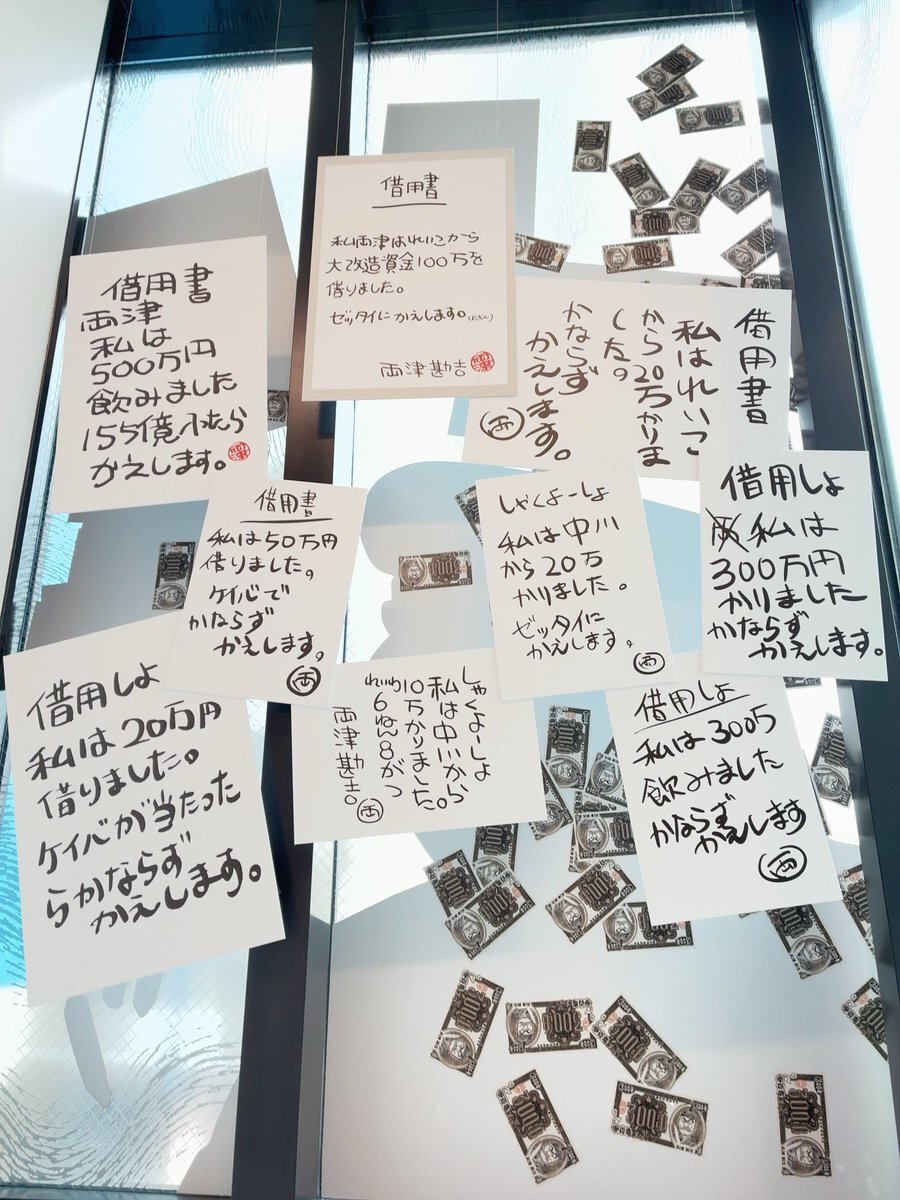 借用書
私両津はれいこから
大改造資金100万を
借りました。
ゼッタイにかえします。
両津勘吉
借用書
両津
私は
500万円
飲みました
155億入ったら
かえします。
借用書
私はれいこ
から20万かりま
した。
かならず
かえします。
両
借用書
私は50万円
借りました。
ケイバで
かならず
かえします。
両
しゃくよーしょ
私は中川
から20万
かりました。
ゼッタイに
かえします。
両
借用しょ
私は
300万円
かりました
かならず
かえします。
借用しょ
私は20万円
借りました。
ケイバが当たった
らかならず
かえします。
しゃくよーしょ
私は中川から
10万かりました。
れいわ
6ねん8がつ
両津勘吉
両
借用しょ
私は300万
飲みました
かならず
かえします
両